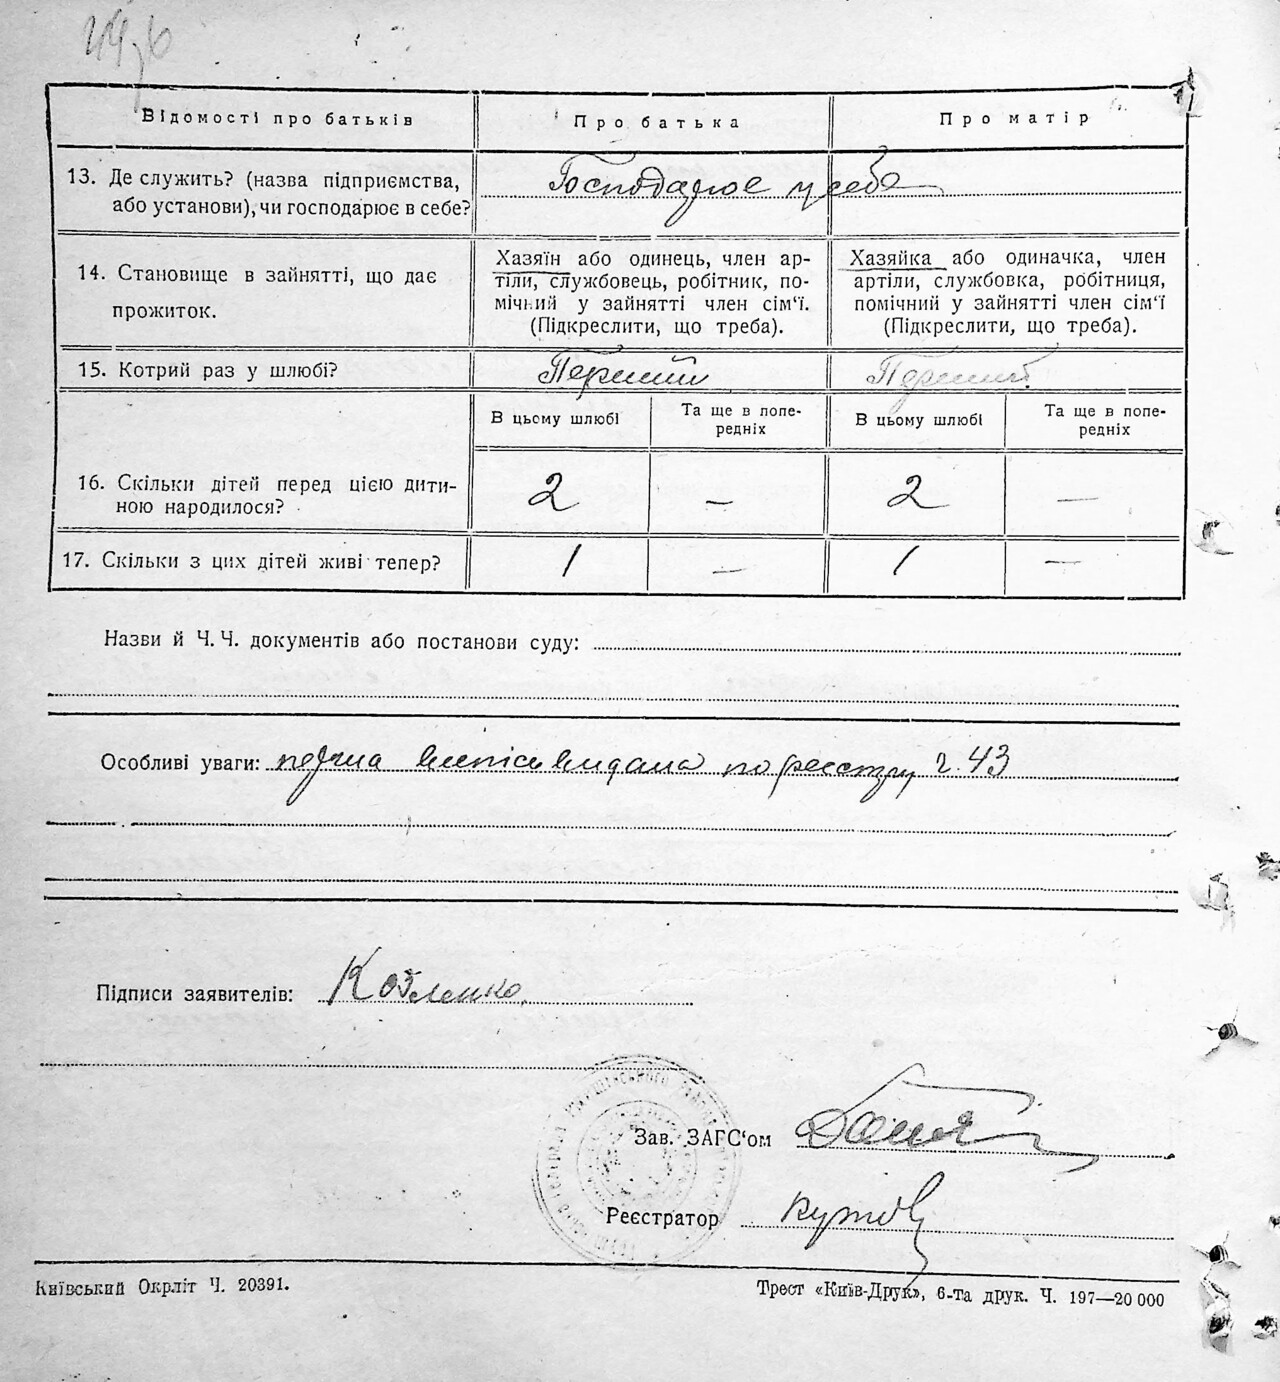 Відомості про батьків
Про батька
Про матір
13. Де служить? (назва підприємства,
або установи), чи господарює в себе?
Господарює у себе
14. Становище в зайнятті, що дає
прожиток.
Хазяїн або одинець, член ар-
тіли, службовець, робітник, по-
мічний у зайнятті член сім'ї.
(Підкреслити, що треба).
Хазяйка або одиначка, член
артіли, службовка, робітниця,
помічний у зайнятті член сім'ї
(Підкреслити, що треба).
15. Котрий раз у шлюбі?
Перший
Перший
В цьому шлюбі
Та ще в попе-
редніх
В цьому шлюбі
Та ще в попе-
редніх
16. Скільки дітей перед цією дити-
ною народилося?
2
—
2
—
17. Скільки з цих дітей живі тепер?
1
—
1
—
Назви й Ч. Ч. документів або постанови суду:
Особливі уваги: перша випись видана по реєстру ч. 43
Підписи заявителів:
Зав. ЗАГС'ом
Реєстратор
Київський Окрліт Ч. 20391.
Трест «Київ-Друк», 6-та друк. Ч. 197—20 000